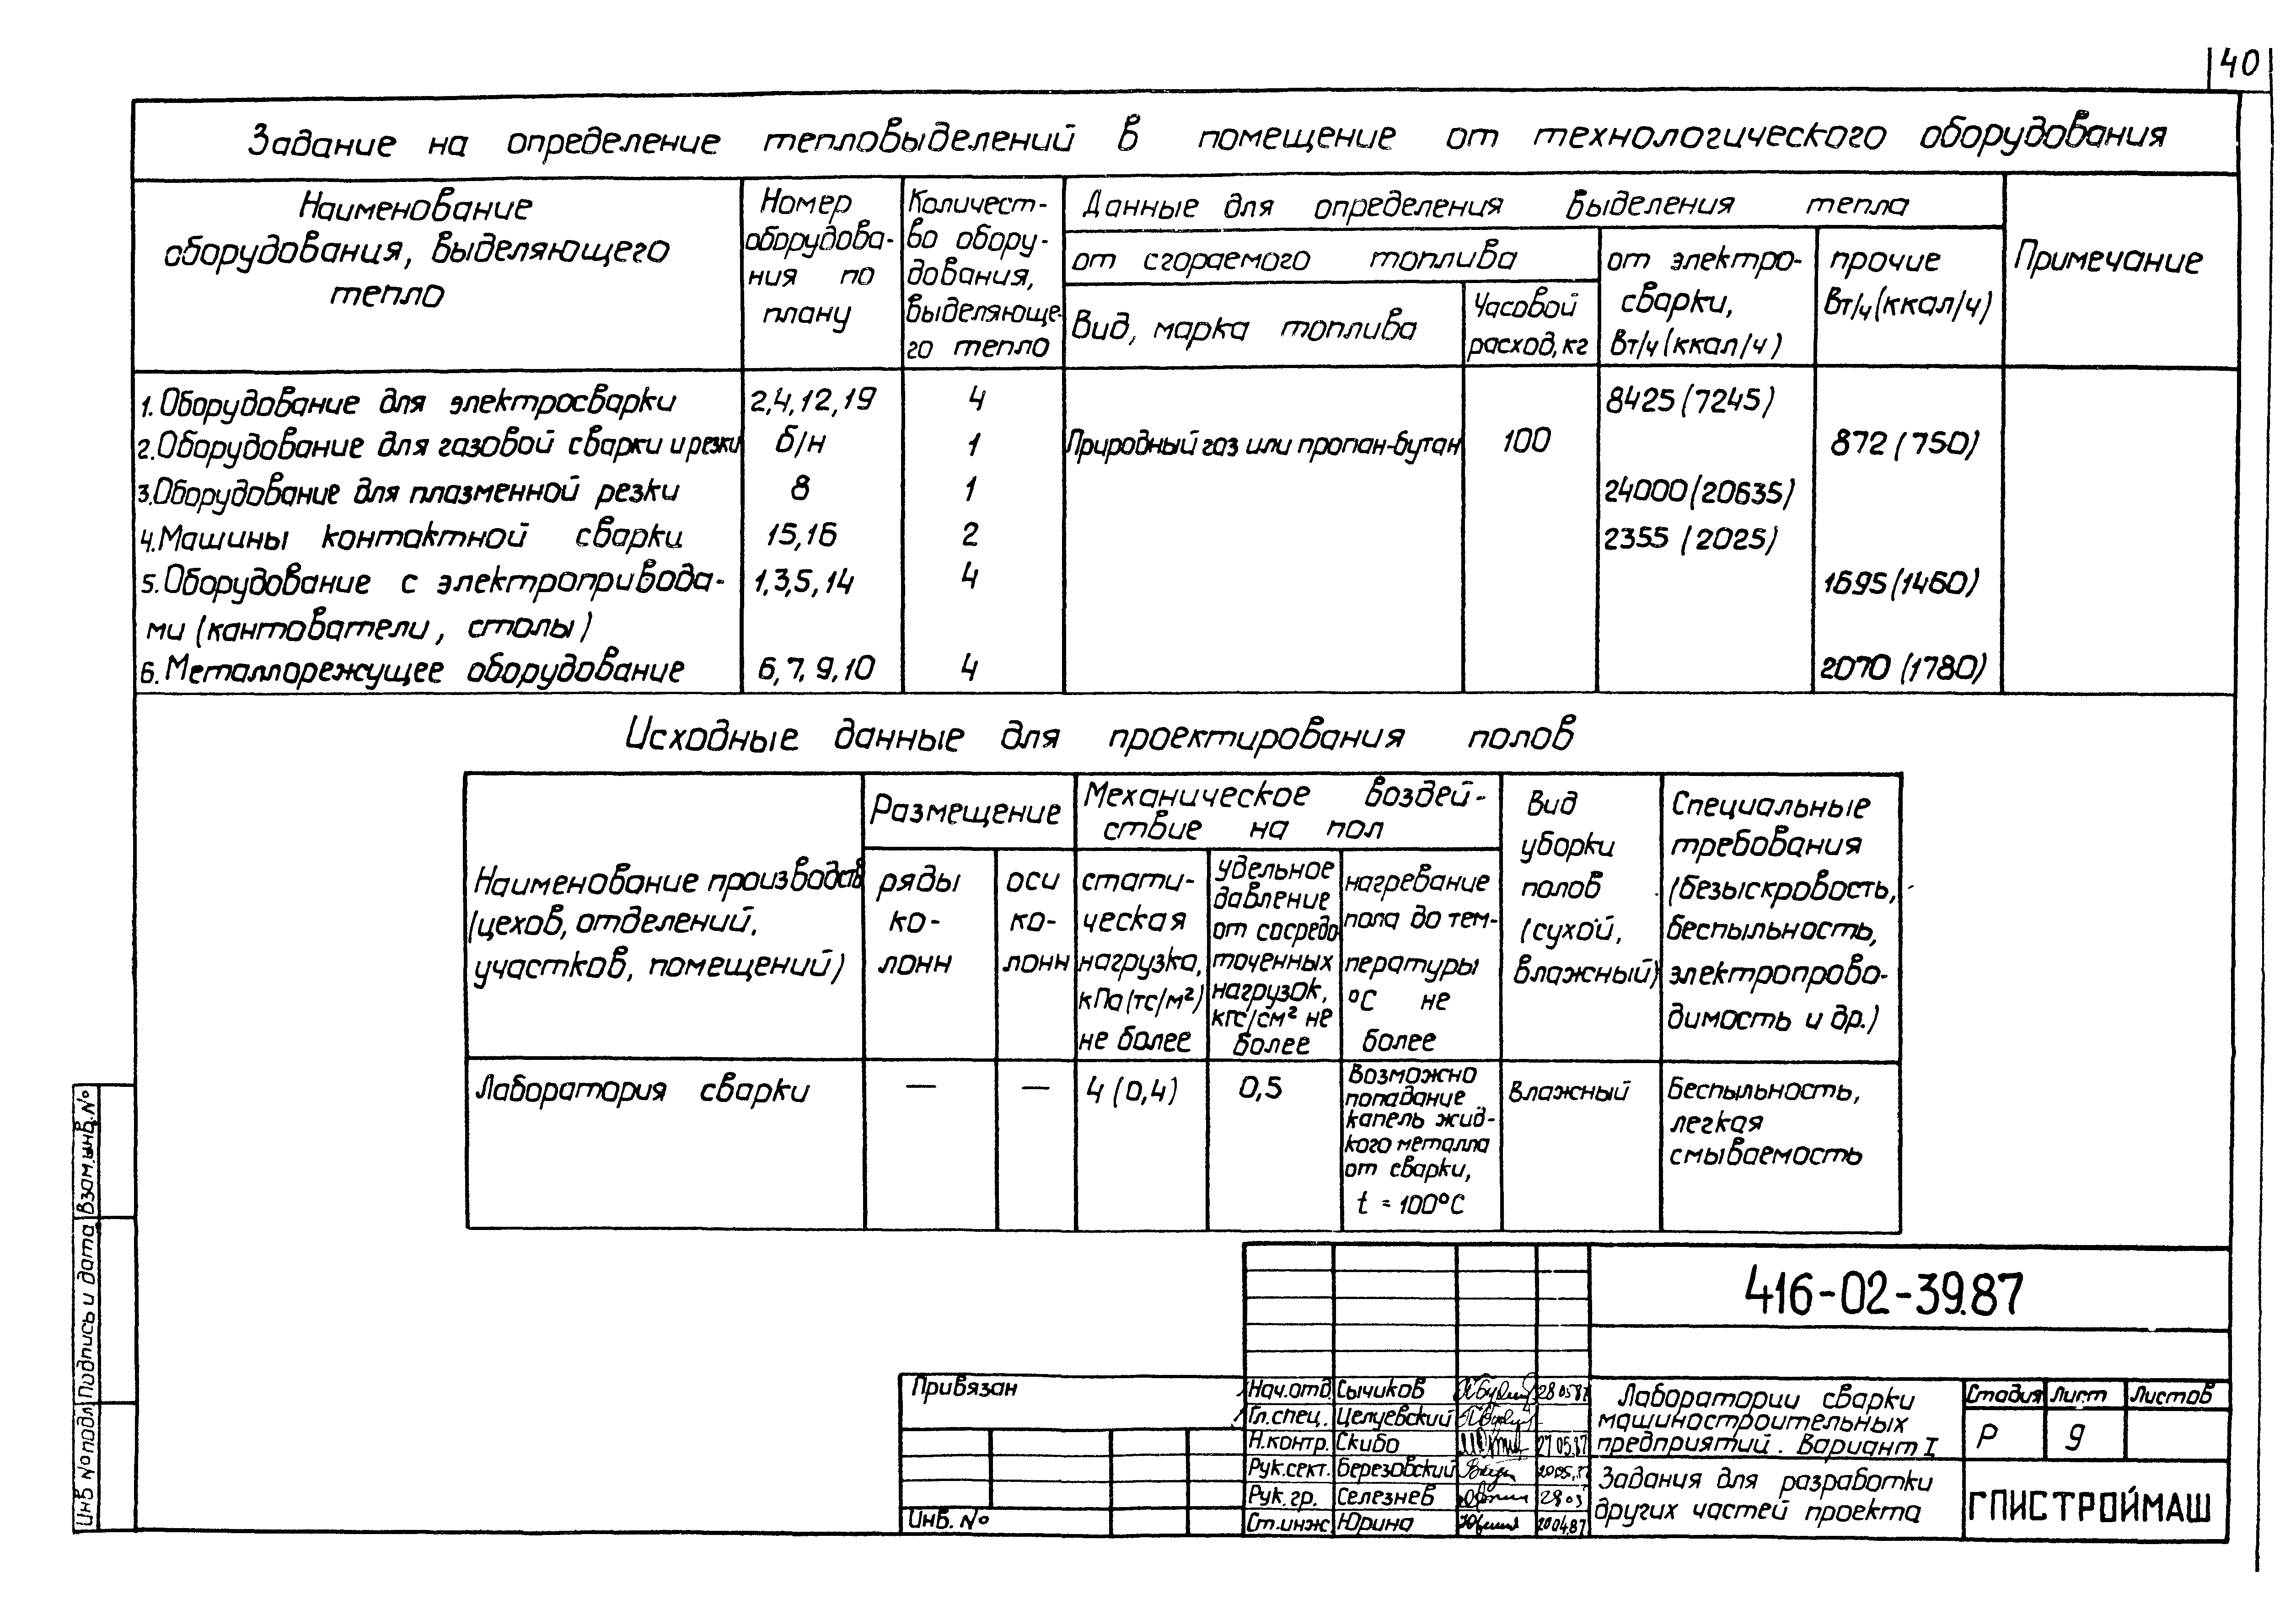 40
Задание на определение тепловыделений в помещение от технологического оборудования
Наименование
оборудования, выделяющего
тепло
Номер
оборудова-
ния по
плану
Количест-
во обору-
дования,
выделяюще-
го тепло
Данные для определения выделения тепла
от сгораемого топлива
Вид, марка топлива
Часовой
расход, кг
от электро-
сварки,
Вт/ч (ккал/ч)
прочие
Вт/ч (ккал/ч)
Примечание
1. Оборудование для электросварки 2,4,12,19 4 8425 (7245)
2. Оборудование для газовой сварки и резки б/н 1 Природный газ или пропан-бутан 100 872 (750)
3. Оборудование для плазменной резки 8 1 24000 (20635)
4. Машины контактной сварки 15,16 2 2355 (2025)
5. Оборудование с электропривода- 1,3,5,14 4 1695 (1460)
ми (кантователи, столы)
6. Металлорежущее оборудование 6,7,9,10 4 2070 (1780)
Исходные данные для проектирования полов
Наименование производств
(цехов, отделений,
участков, помещений)
Размещение
ряды
ко-
лонн
оси
ко-
лонн
Механическое воздей-
ствие на пол
стати-
ческая
нагрузка,
кПа (тс/м²)
не более
удельное
давление
от сосредо
точенных
нагрузок,
кгс/см² не
более
нагревание
пола до тем-
пературы
°С не
более
Вид
уборки
полов
(сухой,
влажный)
Специальные
требования
(безыскровость,
беспыльность,
электропрово-
димость и др.)
Лаборатория сварки — — 4 (0,4) 0,5
Возможно
попадание
капель жид-
кого металла
от сварки,
t = 100°С
влажный
Беспыльность,
легкая
смываемость
416-02-39.87
Привязан
Инв. №
Нач.отд. Сычиков 28.05.87
Гл.спец. Целуевский
Н.контр. Скибо 27.05.87
Рук.сект. Березовский
Рук. гр. Селезнев
Ст.инж. Юрина 20.04.87
Лаборатории сварки
машиностроительных
предприятий. Вариант I
Задания для разработки
других частей проекта
Стадия Лист Листов
Р 9
ГПИСТРОЙМАШ
Взам.инв.№
Подпись и дата
Инв № подл